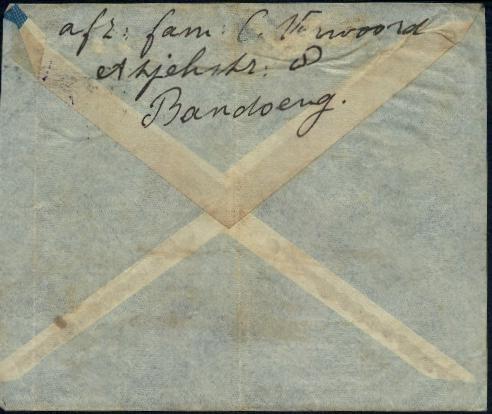 afz: fam: C. Verwoord
Atjehstr: 8
Bandoeng.